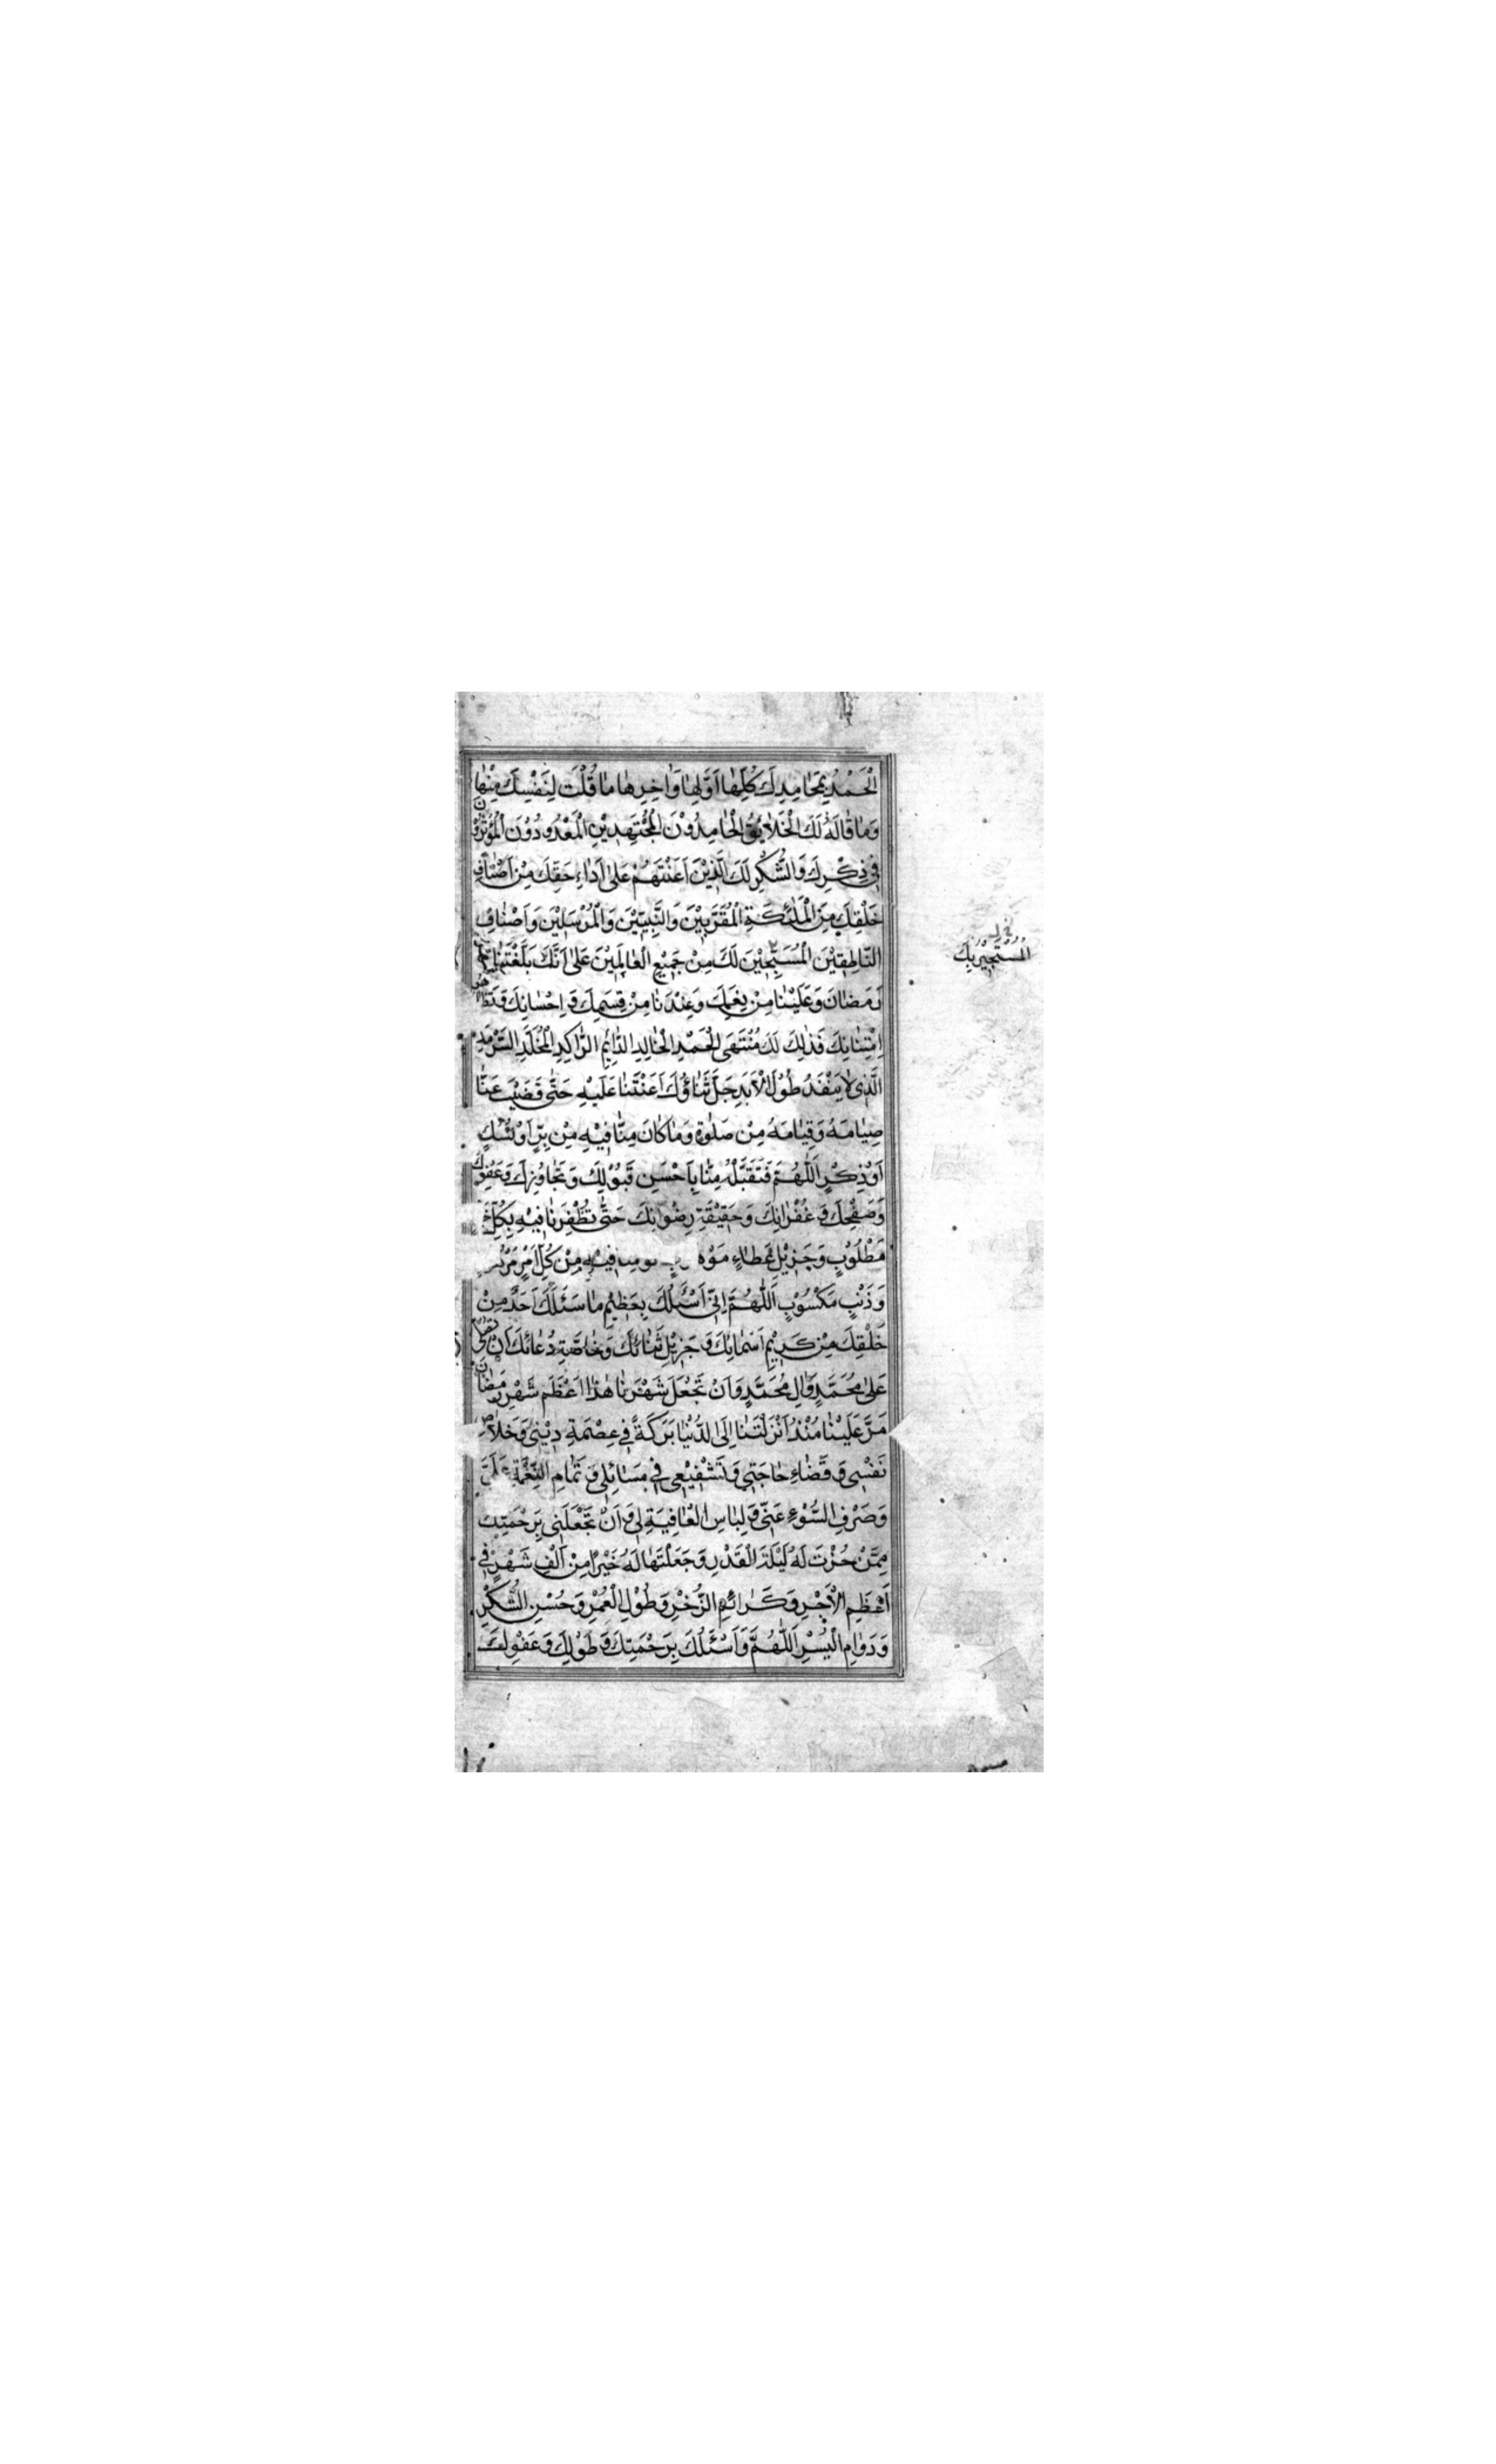 الْحَمْدُ بِمَحَامِدِكَ كُلِّهَا اَوَّلِهَا وَاٰخِرِهَا مَا قُلْتَ لِنَفْسِكَ مِنْهَا
وَمَا قَالَهُ لَكَ الْخَلَائِقُ الْحَامِدُوْنَ الْمُجْتَهِدِيْنَ الْمَعْدُودُوْنَ الْمُؤْثِرُوْنَ
فِي ذِكْرِكَ وَالشُّكْرِ لَكَ الَّذِيْنَ اَعَنْتَهُمْ عَلٰى اَدَاءِ حَقِّكَ مِنْ اَصْنَافِ
خَلْقِكَ مِنَ الْمَلٰئِكَةِ الْمُقَرَّبِيْنَ وَالنَّبِيّيْنَ وَالْمُرْسَلِيْنَ وَاَصْنَافِ
النَّاطِقِيْنَ الْمُسَبِّحِيْنَ لَكَ مِنْ جَمِيْعِ الْعَالَمِيْنَ عَلٰى اَنَّكَ بَلَّغْتَنَا
رَمَضَانَ وَعَلَيْنَا مِنْ نِعَمِكَ وَعِنْدَنَا مِنْ قِسَمِكَ وَ اِحْسَانِكَ وَتَظَاهُرِ
اِمْتِنَانِكَ فَذٰلِكَ لَكَ مُنْتَهَى الْحَمْدِ الْخَالِدِ الدَّائِمِ الرَّاكِدِ الْمُخَلَّدِ السَّرْمَدِ
الَّذِى لَا يَنْفَدُ طُوْلَ الْاَبَدِ جَلَّ ثَنَاؤُكَ اَعَنْتَنَا عَلَيْهِ حَتّٰى قَضَيْتَ عَنَّا
صِيَامَهُ وَقِيَامَهُ مِنْ صَلٰوةٍ وَمَا كَانَ مِنَّا فِيْهِ مِنْ بِرٍّ اَوْ نُسُكٍ
اَوْ ذِكْرٍ اَللّٰهُمَّ فَتَقَبَّلْهُ مِنَّا بِاَحْسَنِ قَبُوْلِكَ وَ تَجَاوُزِكَ وَعَفْوِكَ
وَصَفْحِكَ وَ غُفْرَانِكَ وَحَقِيْقَةِ رِضْوَانِكَ حَتّٰى تُظْفِرَنَا فِيْهِ بِكُلِّ
مَطْلُوْبٍ وَجَزِيْلِ عَطَاءٍ فِيْهِ مِنْ كُلِّ اَمْرٍ
وَذَنْبٍ مَكْسُوْبٍ اَللّٰهُمَّ اِنِّى اَسْئَلُكَ بِعَظِيْمِ مَا سَئَلَكَ اَحَدٌ مِنْ
خَلْقِكَ مِنْ كَرِيْمِ اَسْمَائِكَ وَ جَزِيْلِ ثَنَائِكَ وَخَاصَّةِ دُعَائِكَ اَنْ تُصَلِّىَ
عَلٰى مُحَمَّدٍ وَاٰلِ مُحَمَّدٍ وَاَنْ تَجْعَلَ شَهْرَنَا هٰذَا اَعْظَمَ شَهْرِ رَمَضَانَ
مَرَّ عَلَيْنَا مُنْذُ اَنْزَلْتَنَا اِلَى الدُّنْيَا بَرَكَةً فِى عِصْمَةِ دِيْنِى وَخَلَاصِ
نَفْسِى وَ قَضَاءِ حَاجَتِى وَ تَشْفِيْعِى فِى مَسَائِلِى وَ تَمَامِ النِّعْمَةِ عَلَىَّ
وَصَرْفِ السُّوْءِ عَنِّى وَ لِبَاسِ الْعَافِيَةِ لِى وَ اَنْ تَجْعَلَنِى بِرَحْمَتِكَ
مِمَّنْ حُزْتَ لَهُ لَيْلَةَ الْقَدْرِ وَ جَعَلْتَهَا لَهُ خَيْرًا مِنْ اَلْفِ شَهْرٍ فِى
اَعْظَمِ الْاَجْرِ وَ كَرَائِمِ الذُّخْرِ وَ طُوْلِ الْعُمْرِ وَ حُسْنِ الشُّكْرِ
وَ دَوَامِ الْيُسْرِ اَللّٰهُمَّ وَاَسْئَلُكَ بِرَحْمَتِكَ وَ طَوْلِكَ وَ عَفْوِكَ
الْمُسْتَجِيْرِ بِكَ